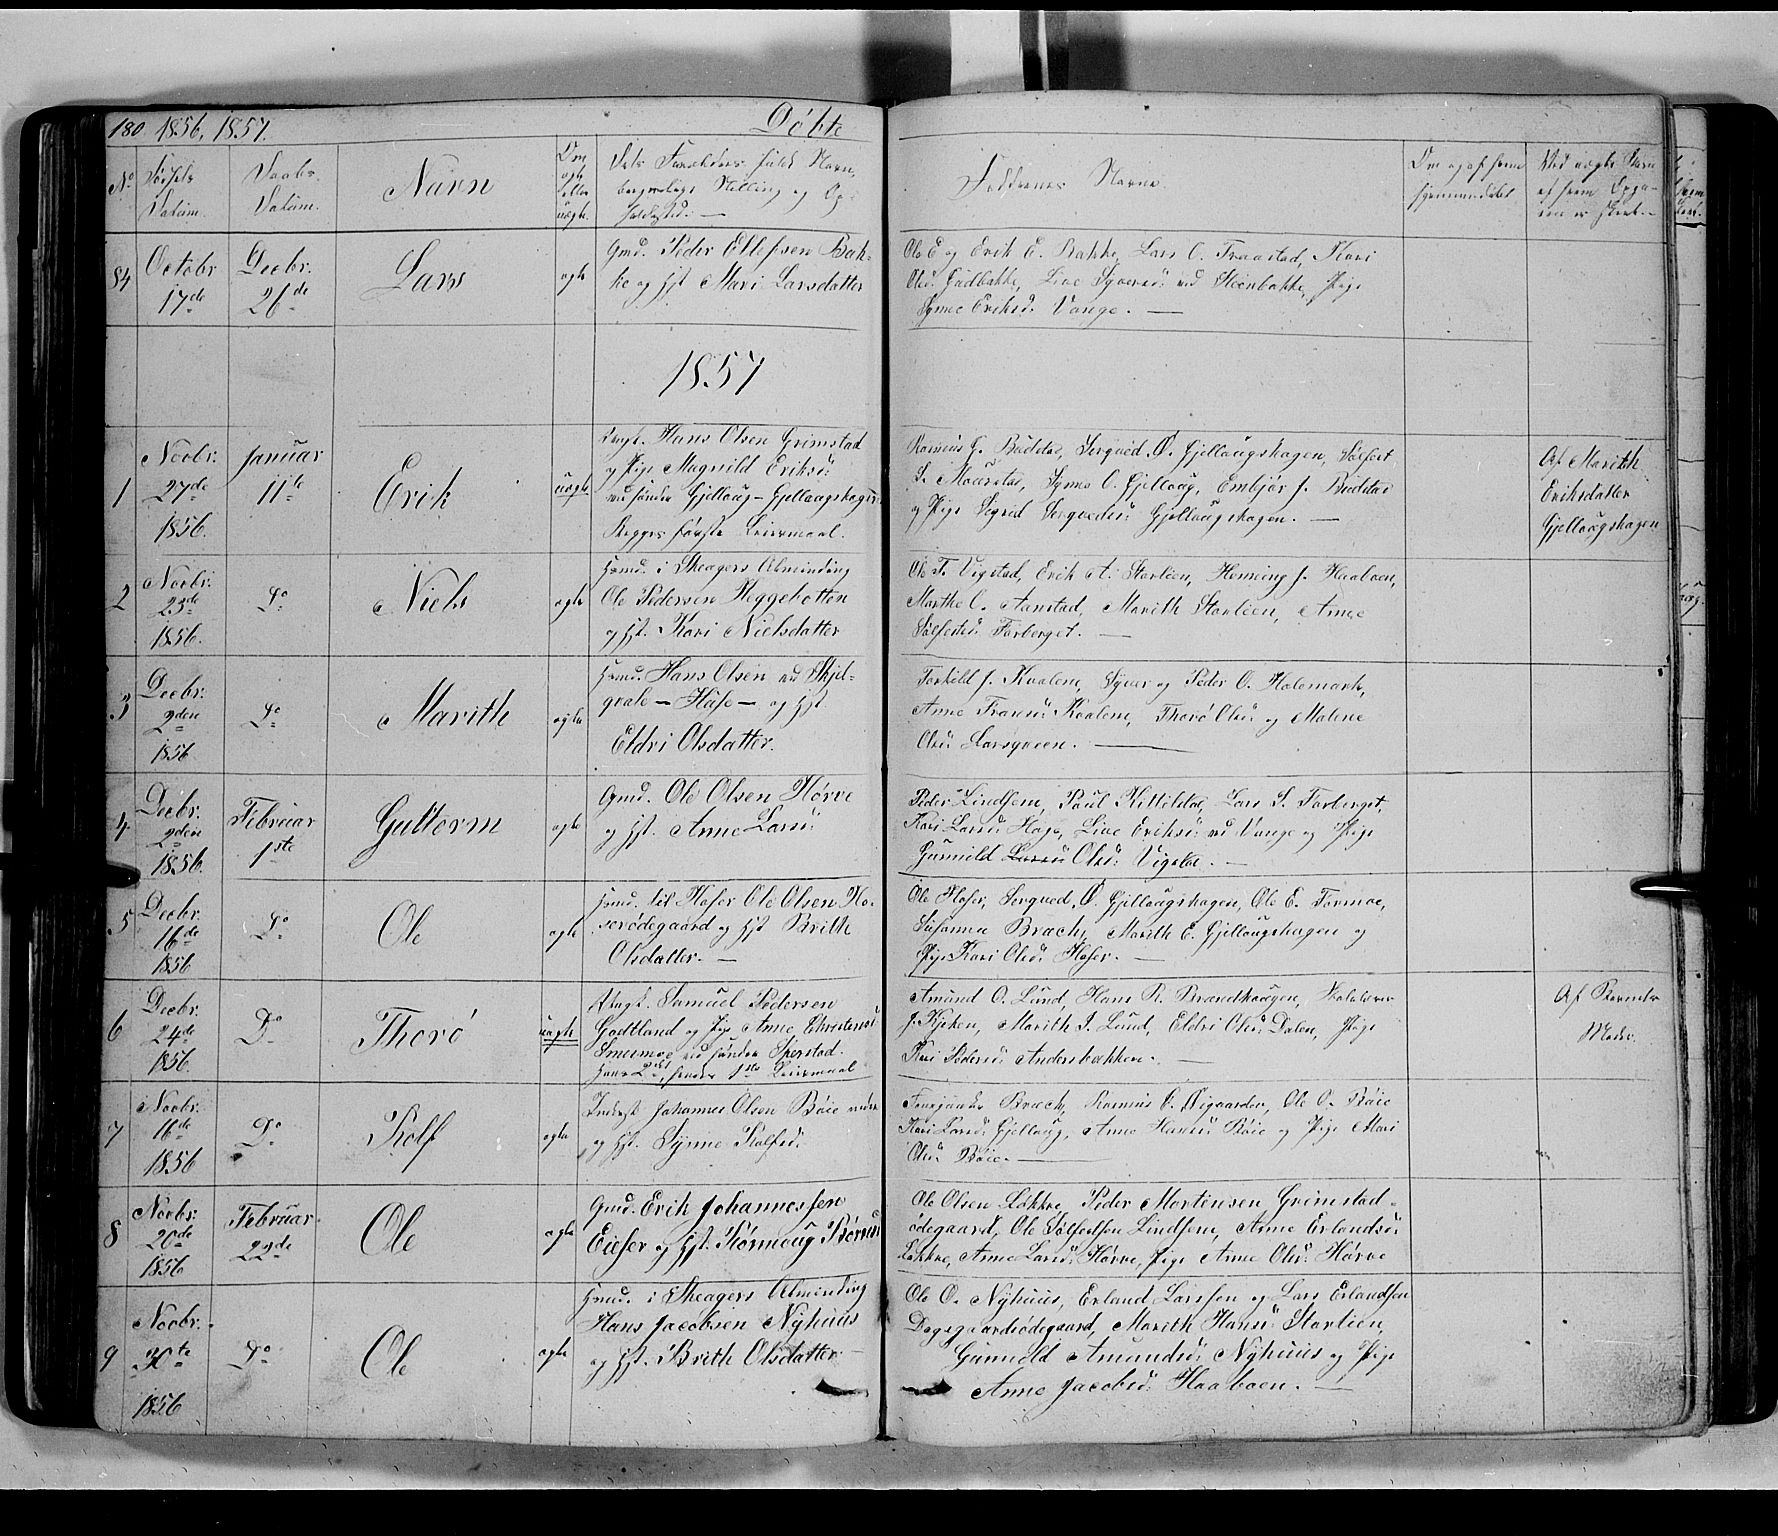 180 1856, 1857. Døbte
No Fødsels Datum. Daabs Datum. Navn Om ægte eller uægte. Dets Forældres fulde Navn, borgerlige Stilling og Opholdssted. — Faddernes Navne. Om og af hvem hjemmedøbt Ved uægte Børn af hvem Opga-
84 Octobr 17de Decbr. 26de Lars ægte
Gmd. Peder Ellefsen Bak-
ke og Hst Mari Larsdatter
Ole E og Erik E. Bakke, Lars O. Fraastad, Kari
Olsd: Gudbakke, Live Syversd: ved Steenbakke, Pige
Synne Eriksd: Vange. —
1857
1 Novbr. 27de 1856. Januar 11te Erik uægte
Ungk. Hans Olsen Grimstad
og Pige Magnild Eriksd:
ved Søndre Gjellaug — Gjellaugshagen
Begges første Leiermaal.
Rasmus G. Budstae, Sergved Ø. Gjellaugshagen, Solfest
S. Maurstad, Synne O. Gjellaug, Embjør J. Budstae
og Pige Sigrid Sergvedsd: Gjellaugshagen. —
Af Marith
Eriksdatter
Gjellaugshagen
2 Novbr. 23de 1856. Do Niels ægte
Huusmd. i Skeagers Alminding
Ole Pedersen Heggebotten
og Hst. Kari Nielsdatter
Ole T. Vigstad, Erik A. Storlien, Henning J. Haaboen,
Marthe O. Aanstad, Marith Storlien, Anne
Solfestsd: Forberget. —
3 Decbr. 2den 1856 Do Marith ægte
Huusmd. Hans Olsen ved Skjel-
qvale — — og Hst.
Eldri Olsdatter.
Torkild J. Kvalene, Syver og Peder O. Holemark,
Anne Fransd: Kvalene, Thorø Olsd: og Malene
Olsd: Larsgveen. —
4 Decbr. 2den 1856. Februar 1ste Guttorm ægte
Gmd. Ole Olsen Hørve
og Hst. Anne Larsd:
Peder Lindsøm, Paul Kittilstae, Lars S. Forberget,
Kari Larsd: Hage, Live Eriksd: ved Vange og Pige
Gunnild Larsd: Olsd: Vigstae. —
5 Decbr. 16de 1856 Do Ole ægte
Huusmd. til Hoser Ole Olsen Ho-
serødegaard og Hst Brith
Olsdatter. —
Ole Hoser, Sergved Ø. Gjellaugshagen, Ole E. Formoe,
Susanne Brach, Marith E. Gjellaugshagen og
Pige Kari Olsd: Hoser. —
6 Decbr. 24de 1856. Do Thorø uægte
Ungk. Samuel Pedersen
Godtland og Pige Anne Christensd:
ved Søndre Sperstad.
Hans 2det, hendes 1ste Leiermaal
Amund O. Lund, Hans R. Brændhaugen, Skolelærer
J. Kjøken, Marith I. Lund, Eldri Olsd: Dalen, Pige
Kari Pedersd: Andersbakken. —
Af Barnets
Moder.
7 Novbr. 16de 1856 Do Rolf ægte
Inderst Johannes Olsen Bøie
og Hst. Synne Rolfsd:
Brach, Rasmus O. Øigaarden, Ole O. Bøie
Kari Larsd: Gjellaug, Anne Hansd: Bøie og Pige Mari
Olsd: Bøie. —
8 Novbr. 20de 1856 Februar 22de Ole ægte
Gmd. Erik Johannessen
Eieser og Hst. Rønnoug
Ole Olsen Løkkre, Peder Mortensen Grimstad-
ødegaard, Ole Solfestsen Lindsøm, Anne Erlandsd:
Løkkre, Anne Larsd: Hørve, Pige Anne Olsd: Hørve
9 Novbr. 30te 1856 Do Ole ægte
Huusmd. i Skeagers Alminding
Hans Jacobsen Nyhuus
og Hst. Brith Olsdatter —
Ole O. Nyhuus, Erland Larssen og Lars Erlandsen
Dagsgaardsødegaard, Marith Hansd: Storlien,
Gunnild Amundsd: Nyhuus og Pige
Anne Jacobsd: Haaboen. —